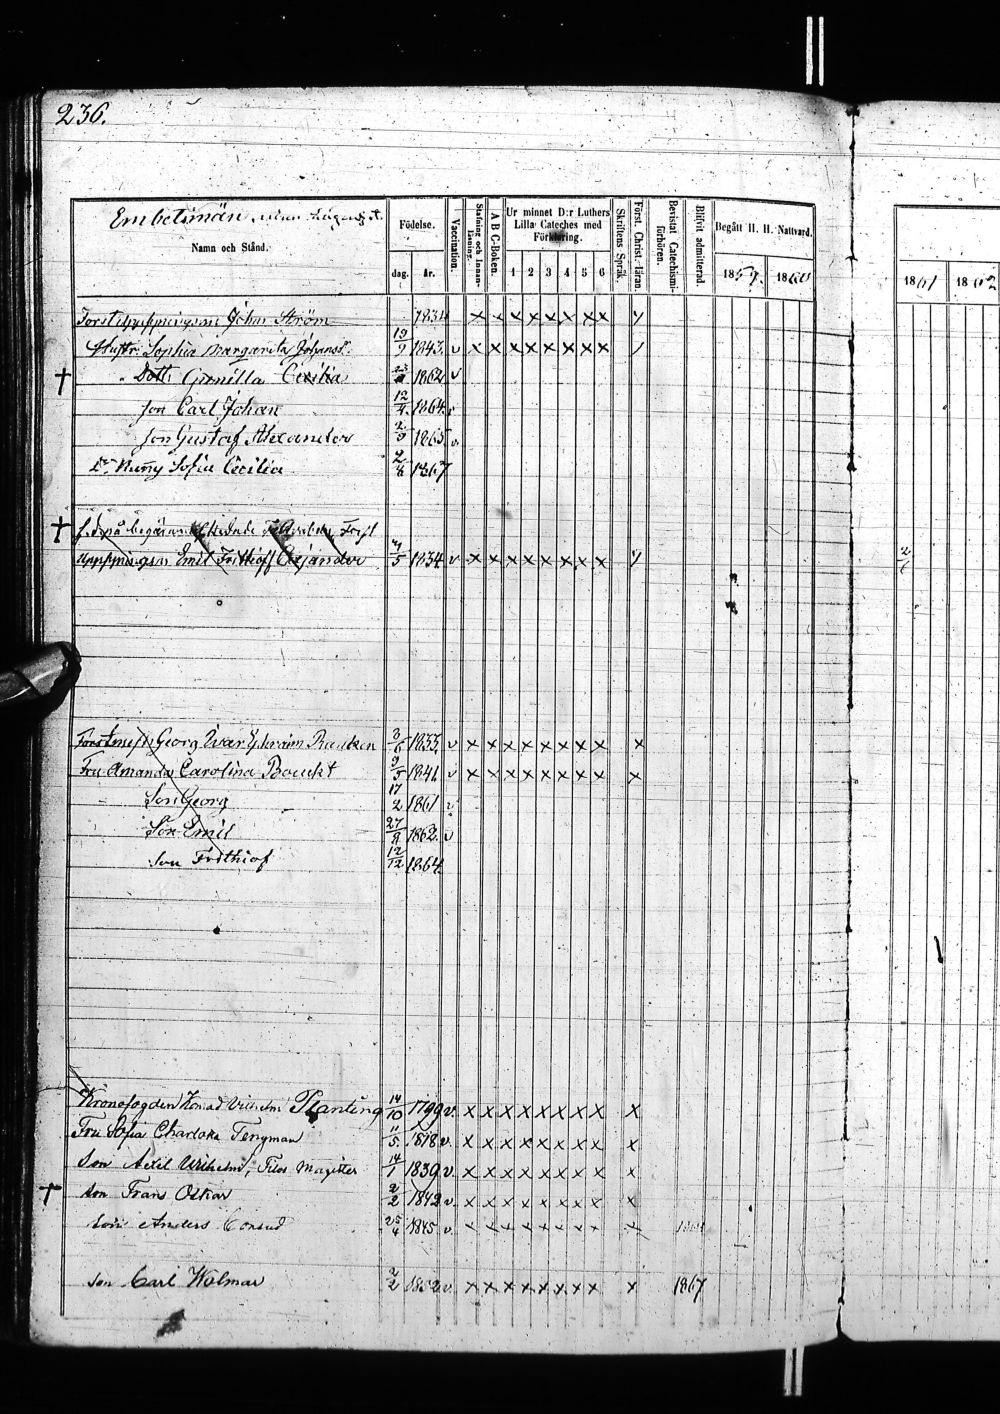 236.
Embetsmän
Namn och Stånd.
Födelse.
dag.
år.
Vaccination.
Stafning och Innan-läsning.
A B C-Boken.
Ur minnet D:r Luthers
Lilla Cateches med
Förklaring.
1 2 3 4 5 6
Skriftens Språk.
Först. Christ.-läran.
Bevistat Catechismi-förhören.
Blifvit admitterad.
Begått H. H. Nattvard.
1859. 1860
1861 1862
John Ström 1834 x x x x x x x x
Hustr. Sophia Margareta Johansdr. 19/9 1843. v x x x x x x x x
† Dottr Gunilla Cecilia 1862 v
son Carl Johan 12/4. 1864. v
son Gustaf Alexander 2/9 1865 v
Dr. Nanny Sofia Cecilia 2/8 1867
† f.d. på begäran
Emil Frithioff 4/5 1834 v x x x x x x x x
2/6
Georg Ivar Ephraim 3/6 1833. v x x x x x x x x x
Fru Amanda Carolina 9/5 1841 v x x x x x x x x x
Son Georg 17/2 1861 v
Son Emil 27/8 1862. v
son Frithiof 12/12 1864.
Kronofogden Konrad Vilhelm Planting 14/10 1799 v. x x x x x x x x x
Fru Sofia Charlotta Tengman 11/5. 1818 v. x x x x x x x x x
Son Axel Wilhelm, Filos Magister 14/1 1839 v. x x x x x x x x x
† son Frans Oskar 2/2 1842 v. x x x x x x x x x
son Anders Conrad 25/4 1845 v. x x x x x x x x x
son Carl Wolmar 2/2 1852 v. x x x x x x x x x 1867